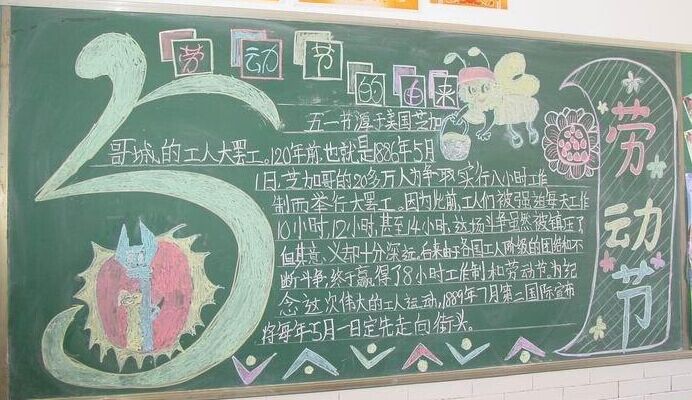 劳动节的由来
五一节源于美国芝加
哥城的工人大罢工。120年前也就是1886年5月
1日,芝加哥的20多万人为争取实行八小时工作
制而举行大罢工。因为此前,工人们被强迫每天工作
10小时,12小时,甚至14小时,这场斗争虽然被镇压了
但其意义却十分深远,后来由于各国工人阶级的团结和不
断斗争,终于赢得了8小时工作制和劳动节,为纪
念这次伟大的工人运动,1889年7月第二国际宣布
将每年5月一日定先走向街头。
劳动节
5